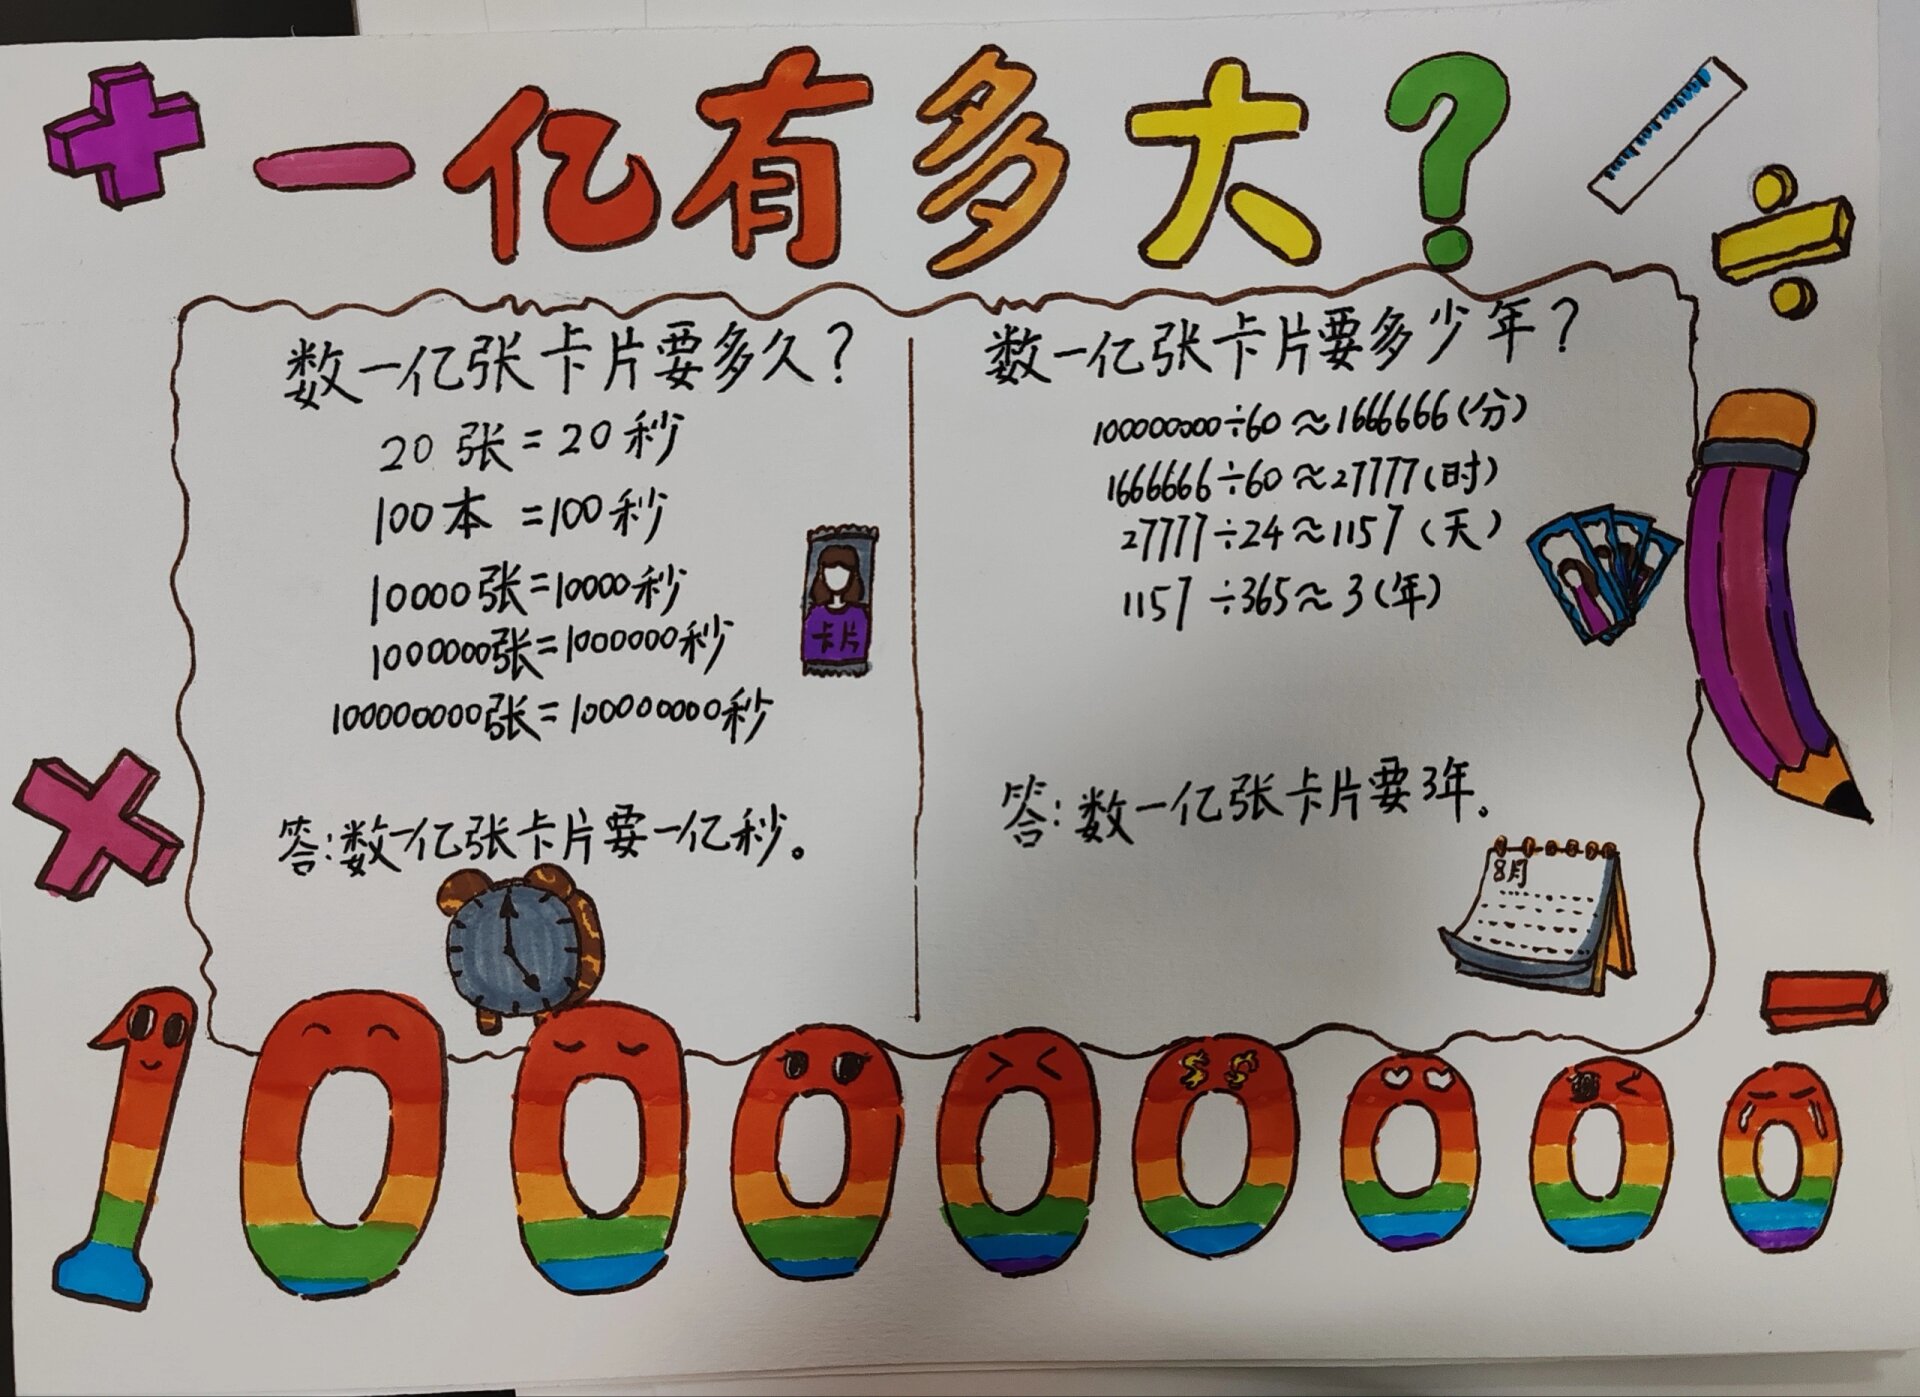 一亿有多大?
数一亿张卡片要多久?
20张=20秒
100本 =100秒
10000张=10000秒
1000000张=1000000秒
100000000张=100000000秒
卡片
答:数一亿张卡片要一亿秒。
数一亿张卡片要多少年?
100000000÷60≈1666666(分)
1666666÷60≈27777(时)
27777÷24≈1157(天)
1157÷365≈3(年)
答:数一亿张卡片要3年。
8月
100000000